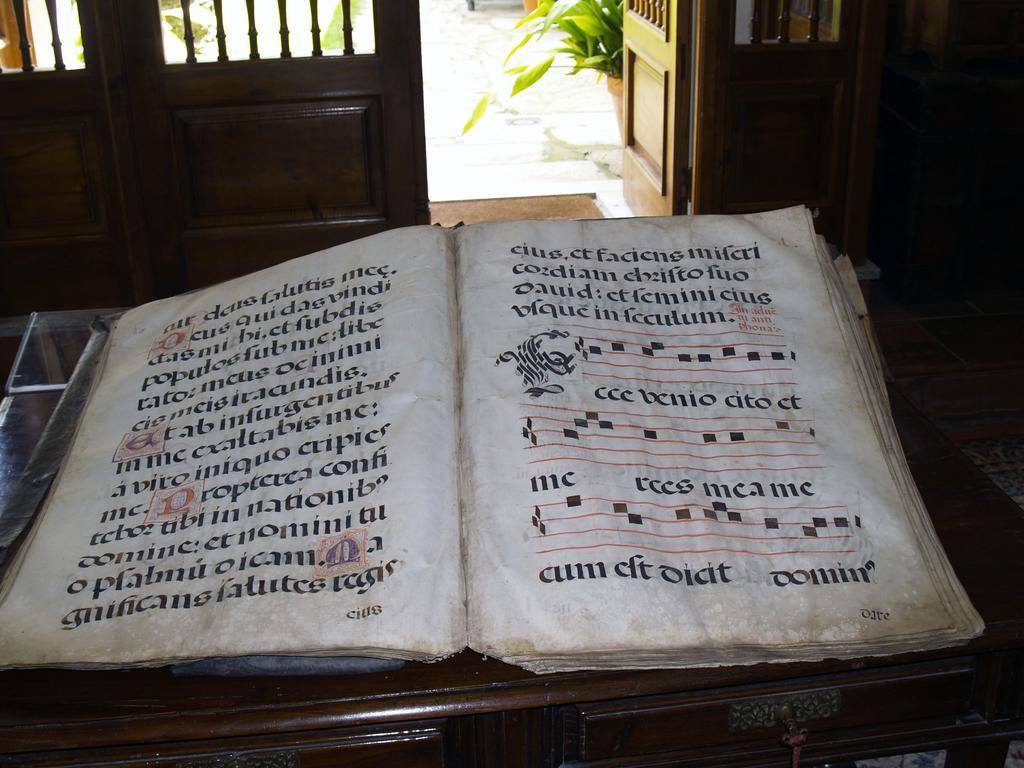 tur deus salutis mee.
Deus qui das vindi
ctas mihi, et subdis
populos sub me: libe
rator meus de inimi
cis meis iracundis.
Et ab insurgentibus
in me exaltabis me:
a viro iniquo eripies
me. Propterea confi
tebor tibi in nationibꝰ
domine: et nomini tu
o psalmū dicam. Ma
gnificans salutes regis
eius
eius, et faciens miseri
cordiam christo suo
David: et semini eius
vsque in seculum. In adue
tu anti
phona
Ecce venio cito et
me rces mea me
cum est dicit dominꝰ
dare